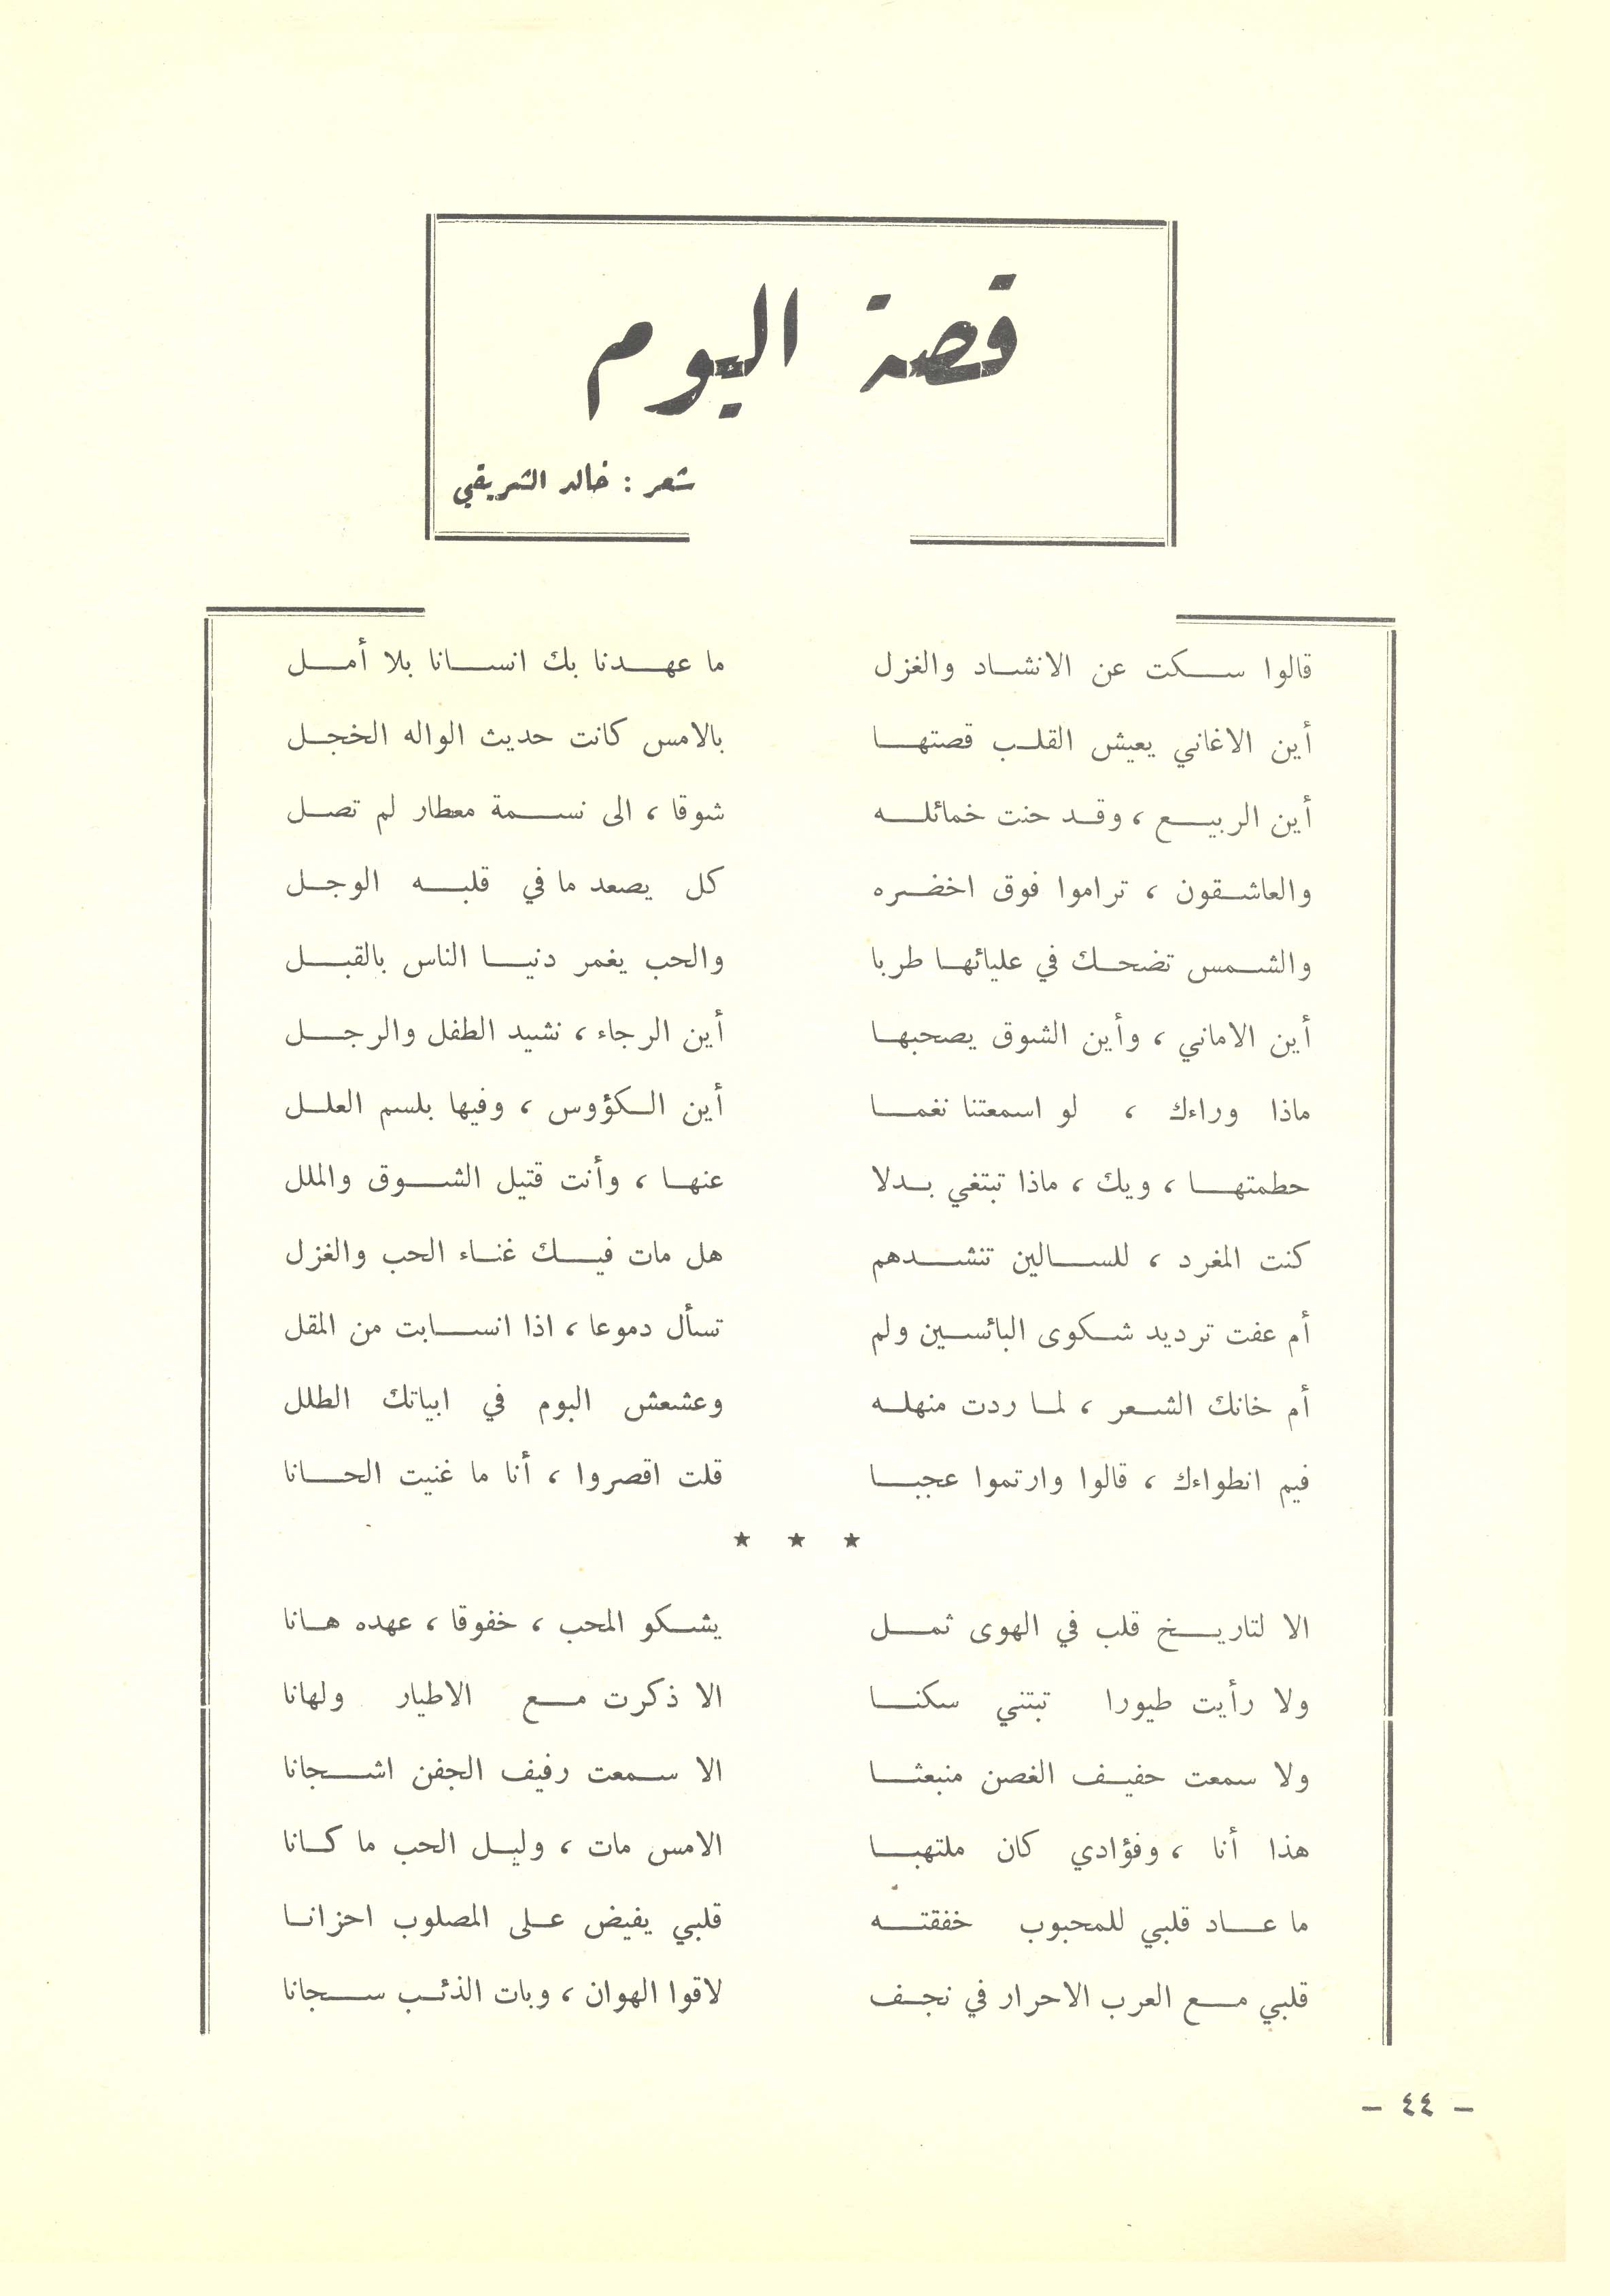 قصة اليوم
شعر : خالد الشريقي
قالوا سكت عن الانشاد والغزل ما عهدنا بك انسانا بلا أمل
أين الاغاني يعيش القلب قصتها بالامس كانت حديث الواله الخجل
أين الربيع ، وقد حنت خمائله شوقا ، الى نسمة معطار لم تصل
والعاشقون ، تراموا فوق اخضره كل يصعد ما في قلبه الوجل
والشمس تضحك في عليائها طربا والحب يغمر دنيا الناس بالقبل
أين الاماني ، وأين الشوق يصحبها أين الرجاء ، نشيد الطفل والرجل
ماذا وراءك ، لو اسمعتنا نغما أين الكؤوس ، وفيها بلسم العلل
حطمتها ، ويك ، ماذا تبتغي بدلا عنها ، وأنت قتيل الشوق والملل
كنت المغرد ، للسالين تنشدهم هل مات فيك غناء الحب والغزل
أم عفت ترديد شكوى البائسين ولم تسأل دموعا ، اذا انسابت من المقل
أم خانك الشعر ، لما ردت منهله وعشعش البوم في ابياتك الطلل
فيم انطواءك ، قالوا وارتموا عجبا قلت اقصروا ، أنا ما غنيت الحانا
★ ★ ★
الا لتاريخ قلب في الهوى ثمل يشكو المحب ، خفوقا ، عهده هانا
ولا رأيت طيورا تبتني سكنا الا ذكرت مع الاطيار ولهانا
ولا سمعت حفيف الغصن منبعثا الا سمعت رفيف الجفن اشجانا
هذا أنا ، وفؤادي كان ملتهبا الامس مات ، وليل الحب ما كانا
ما عاد قلبي للمحبوب خفقته قلبي يفيض على المصلوب احزانا
قلبي مع العرب الاحرار في نجف لاقوا الهوان ، وبات الذئب سجانا
- ٤٤ -